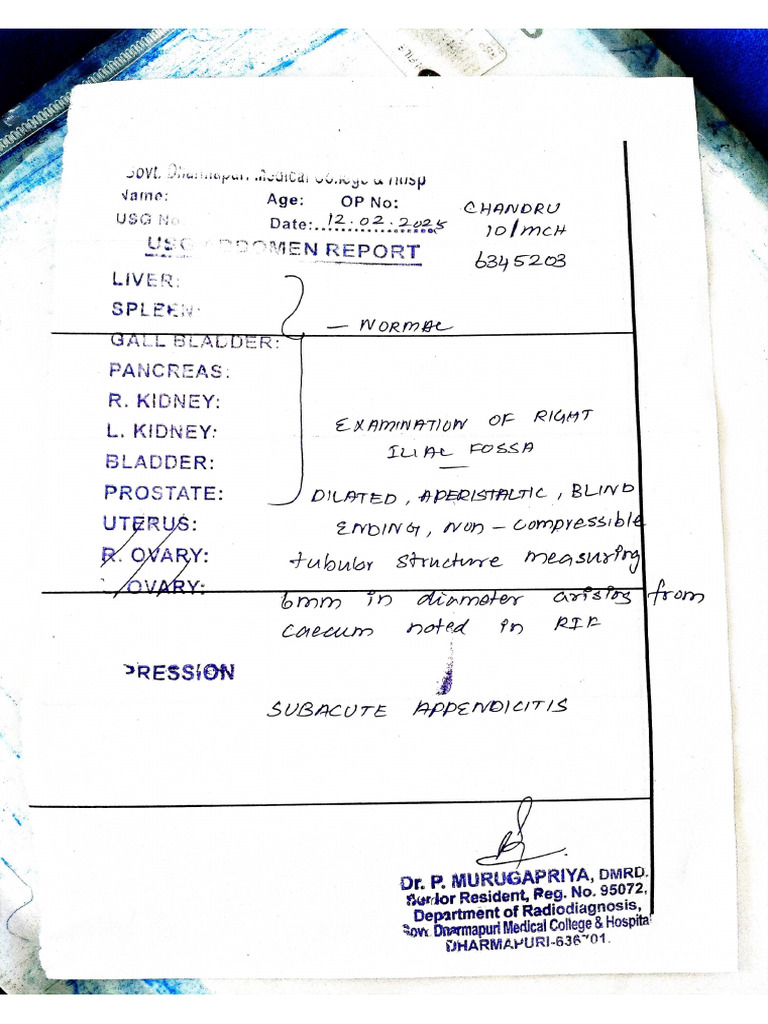 Govt. Dharmapuri Medical College & Hosp
Name: Age: OP No: CHANDRU
USG No Date:.12.02.2025 10/MCH
USG ABDOMEN REPORT 6345203
LIVER:
SPLEEN:
– NORMAL
GALL BLADDER:
PANCREAS:
R. KIDNEY:
EXAMINATION OF RIGHT
L. KIDNEY:
ILIAC FOSSA
BLADDER:
PROSTATE: DILATED, APERISTALTIC, BLIND
UTERUS: ENDING, NON – compressible
R. OVARY: tubular structure measuring
OVARY: 6mm in diameter arising from
caecum noted in RIF
PRESSION
SUBACUTE APPENDICITIS
Dr. P. MURUGAPRIYA, DMRD.
Senior Resident, Reg. No. 95072,
Department of Radiodiagnosis,
Govt. Dharmapuri Medical College & Hospital
DHARMAPURI-636701.